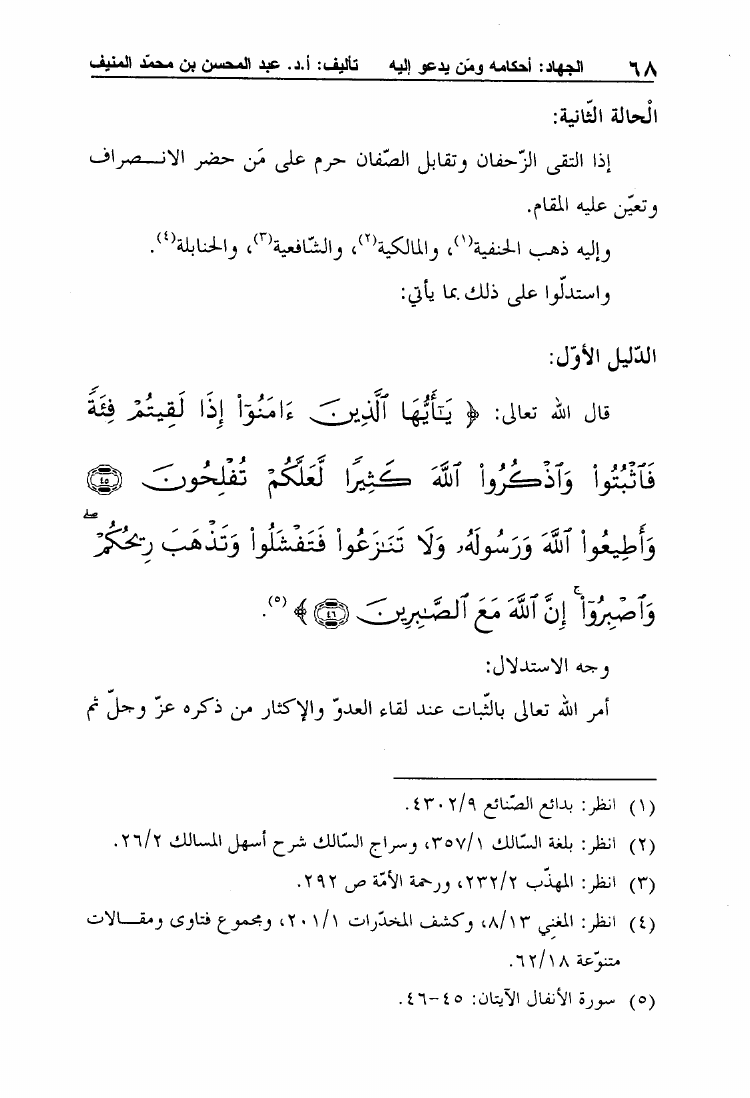 ٦٨ الجهاد: أحكامه ومَن يدعو إليه تأليف: أ.د. عبد المحسن بن محمّد المنيف
الْحالة الثّانية:
إذا التقى الزّحفان وتقابل الصّفان حرم على مَن حضر الانــصراف
وتعيّن عليه المقام.
وإليه ذهب الحنفية(١)، والمالكية(٢)، والشّافعية(٣)، والحنابلة(٤).
واستدلّوا على ذلك بما يأتي:
الدّليل الأوّل:
قال الله تعالى: ﴿ يَـٰٓأَيُّهَا ٱلَّذِينَ ءَامَنُوٓا۟ إِذَا لَقِيتُمْ فِئَةً
فَٱثْبُتُوا۟ وَٱذْكُرُوا۟ ٱللَّهَ كَثِيرًا لَّعَلَّكُمْ تُفْلِحُونَ ۝٤٥
وَأَطِيعُوا۟ ٱللَّهَ وَرَسُولَهُۥ وَلَا تَنَـٰزَعُوا۟ فَتَفْشَلُوا۟ وَتَذْهَبَ رِيحُكُمْ ۖ
وَٱصْبِرُوٓا۟ ۚ إِنَّ ٱللَّهَ مَعَ ٱلصَّـٰبِرِينَ ۝٤٦ ﴾(٥).
وجه الاستدلال:
أمر الله تعالى بالثّبات عند لقاء العدوّ والإكثار من ذكره عزّ وجلّ ثم
(١) انظر: بدائع الصّنائع ٤٣٠٢/٩.
(٢) انظر: بلغة السّالك ٣٥٧/١، وسراج السّالك شرح أسهل المسالك ٢٦/٢.
(٣) انظر: المهذّب ٢٣٢/٢، ورحمة الأمّة ص ٢٩٢.
(٤) انظر: المغني ٨/١٣، وكشف المخدّرات ٢٠١/١، ومجموع فتاوى ومقــالات
متنوّعة ٦٢/١٨.
(٥) سورة الأنفال الآيتان: ٤٥-٤٦.